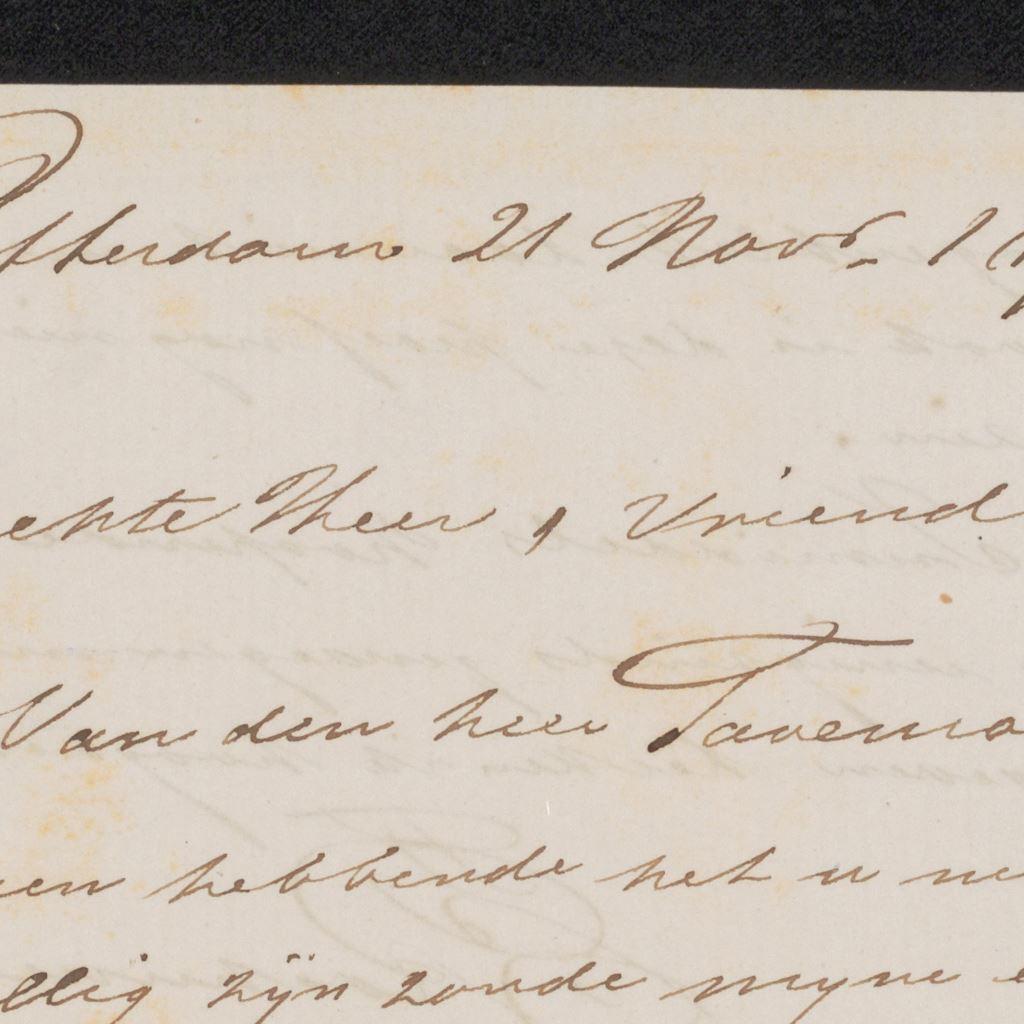 Rotterdam 21 Novr. 1
Heer, Vriend
Van den heer Tavemo
en hebbende het u
llig zijn zoude myne